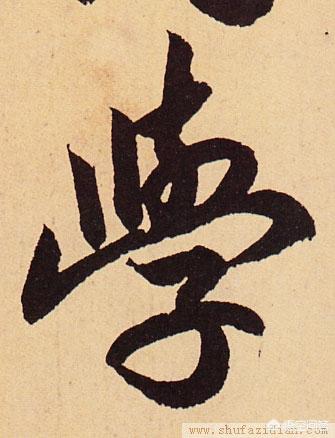 學
www.shufazidian.com
悟空问答